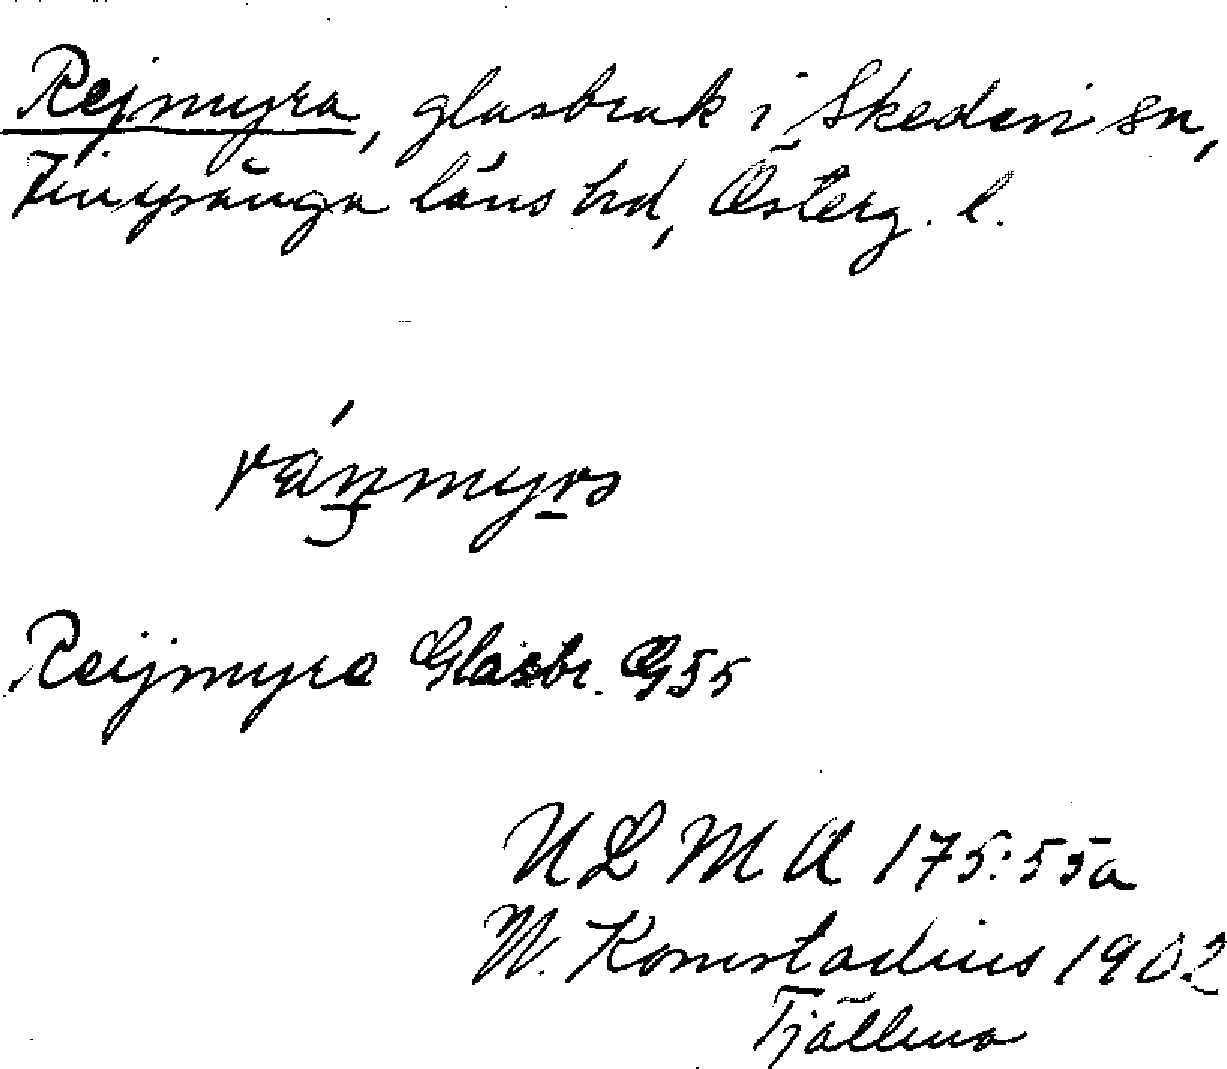 Rejmyra, glasbruk i Skedevi sn,
Finspånga läns hd, Österg. l.
Reijmyre Glasbr. G55
ULMA 175:55a
W. Komstadius 1902
Tjällmo